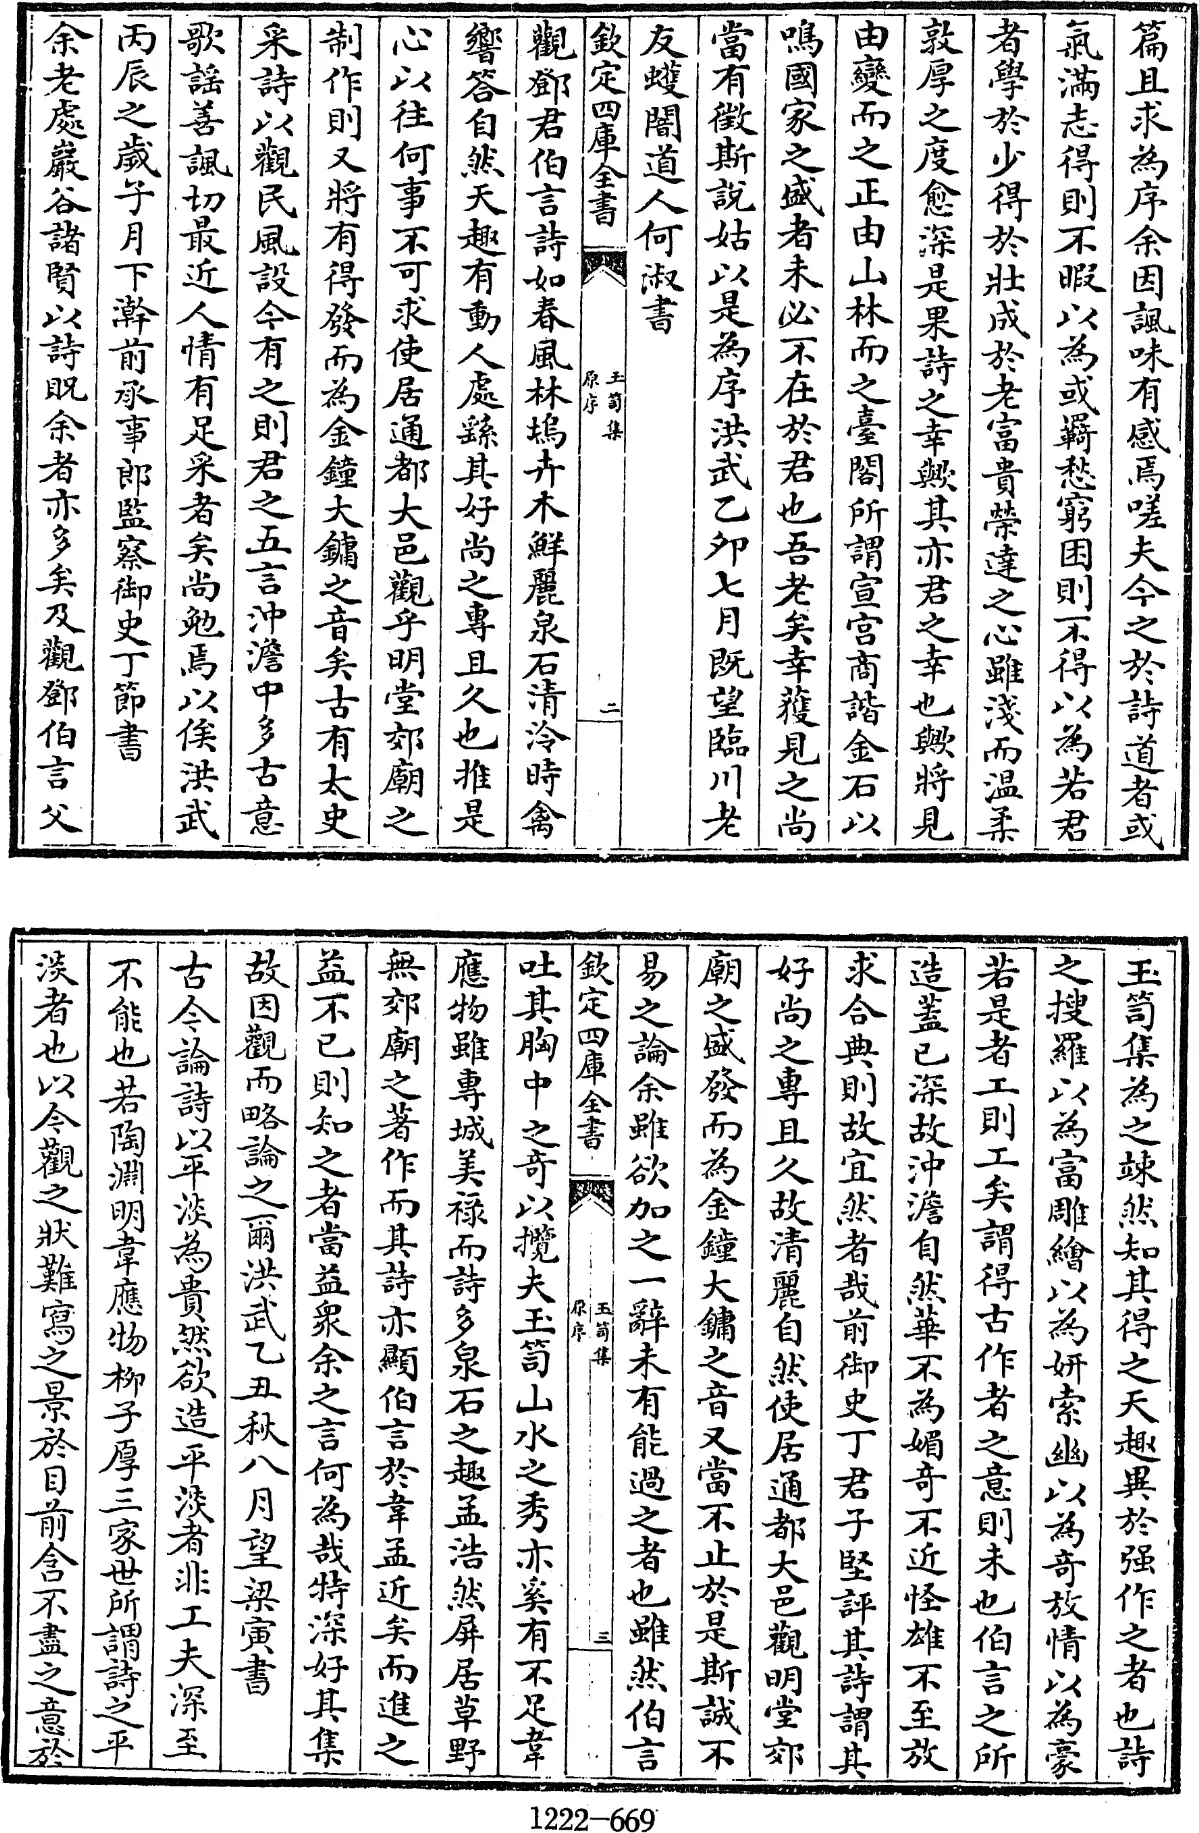 篇且求為序余因諷味有感焉嗟夫今之於詩道者或
氣滿志得則不暇以為或羇愁窮困則不得以為若君
者學於少得於壯成於老富貴榮達之心雖淺而温柔
敦厚之度愈深是果詩之幸歟其亦君之幸也歟將見
由變而之正由山林而之臺閣所謂宣宫商諧金石以
鳴國家之盛者未必不在於君也吾老矣幸獲見之尚
當有徵斯說姑以是為序洪武乙夘七月既望臨川老
友蠖闇道人何淑書
欽定四庫全書
玉笥集
原序
二
觀鄧君伯言詩如春風林塢卉木鮮麗泉石清泠時禽
響答自然天趣有動人處繇其好尚之專且久也推是
心以往何事不可求使居通都大邑觀乎明堂郊廟之
制作則又將有得發而為金鐘大鏞之音矣古有太史
采詩以觀民風設今有之則君之五言沖澹中多古意
歌謡善諷切最近人情有足采者矣尚勉焉以俟洪武
丙辰之歲子月下澣前承事郎監察御史丁節書
余老處巖谷諸賢以詩貺余者亦多矣及觀鄧伯言父
玉笥集為之竦然知其得之天趣異於强作之者也詩
之搜羅以為富雕繪以為妍索幽以為奇放情以為豪
若是者工則工矣謂得古作者之意則未也伯言之所
造蓋已深故沖澹自然華不為媚奇不近怪雄不至放
求合典則故宜然者哉前御史丁君子堅評其詩謂其
好尚之專且久故清麗自然使居通都大邑觀明堂郊
廟之盛發而為金鐘大鏞之音又當不止於是斯誠不
易之論余雖欲加之一辭未有能過之者也雖然伯言
欽定四庫全書
玉笥集
原序
三
吐其胸中之奇以攬夫玉笥山水之秀亦奚有不足韋
應物雖專城美禄而詩多泉石之趣孟浩然屏居草野
無郊廟之著作而其詩亦顯伯言於韋孟近矣而進之
益不已則知之者當益衆余之言何為哉特深好其集
故因觀而略論之爾洪武乙丑秋八月望梁寅書
古今論詩以平淡為貴然欲造平淡者非工夫深至
不能也若陶淵明韋應物柳子厚三家世所謂詩之平
淡者也以今觀之狀難寫之景於目前含不盡之意於
1222-669